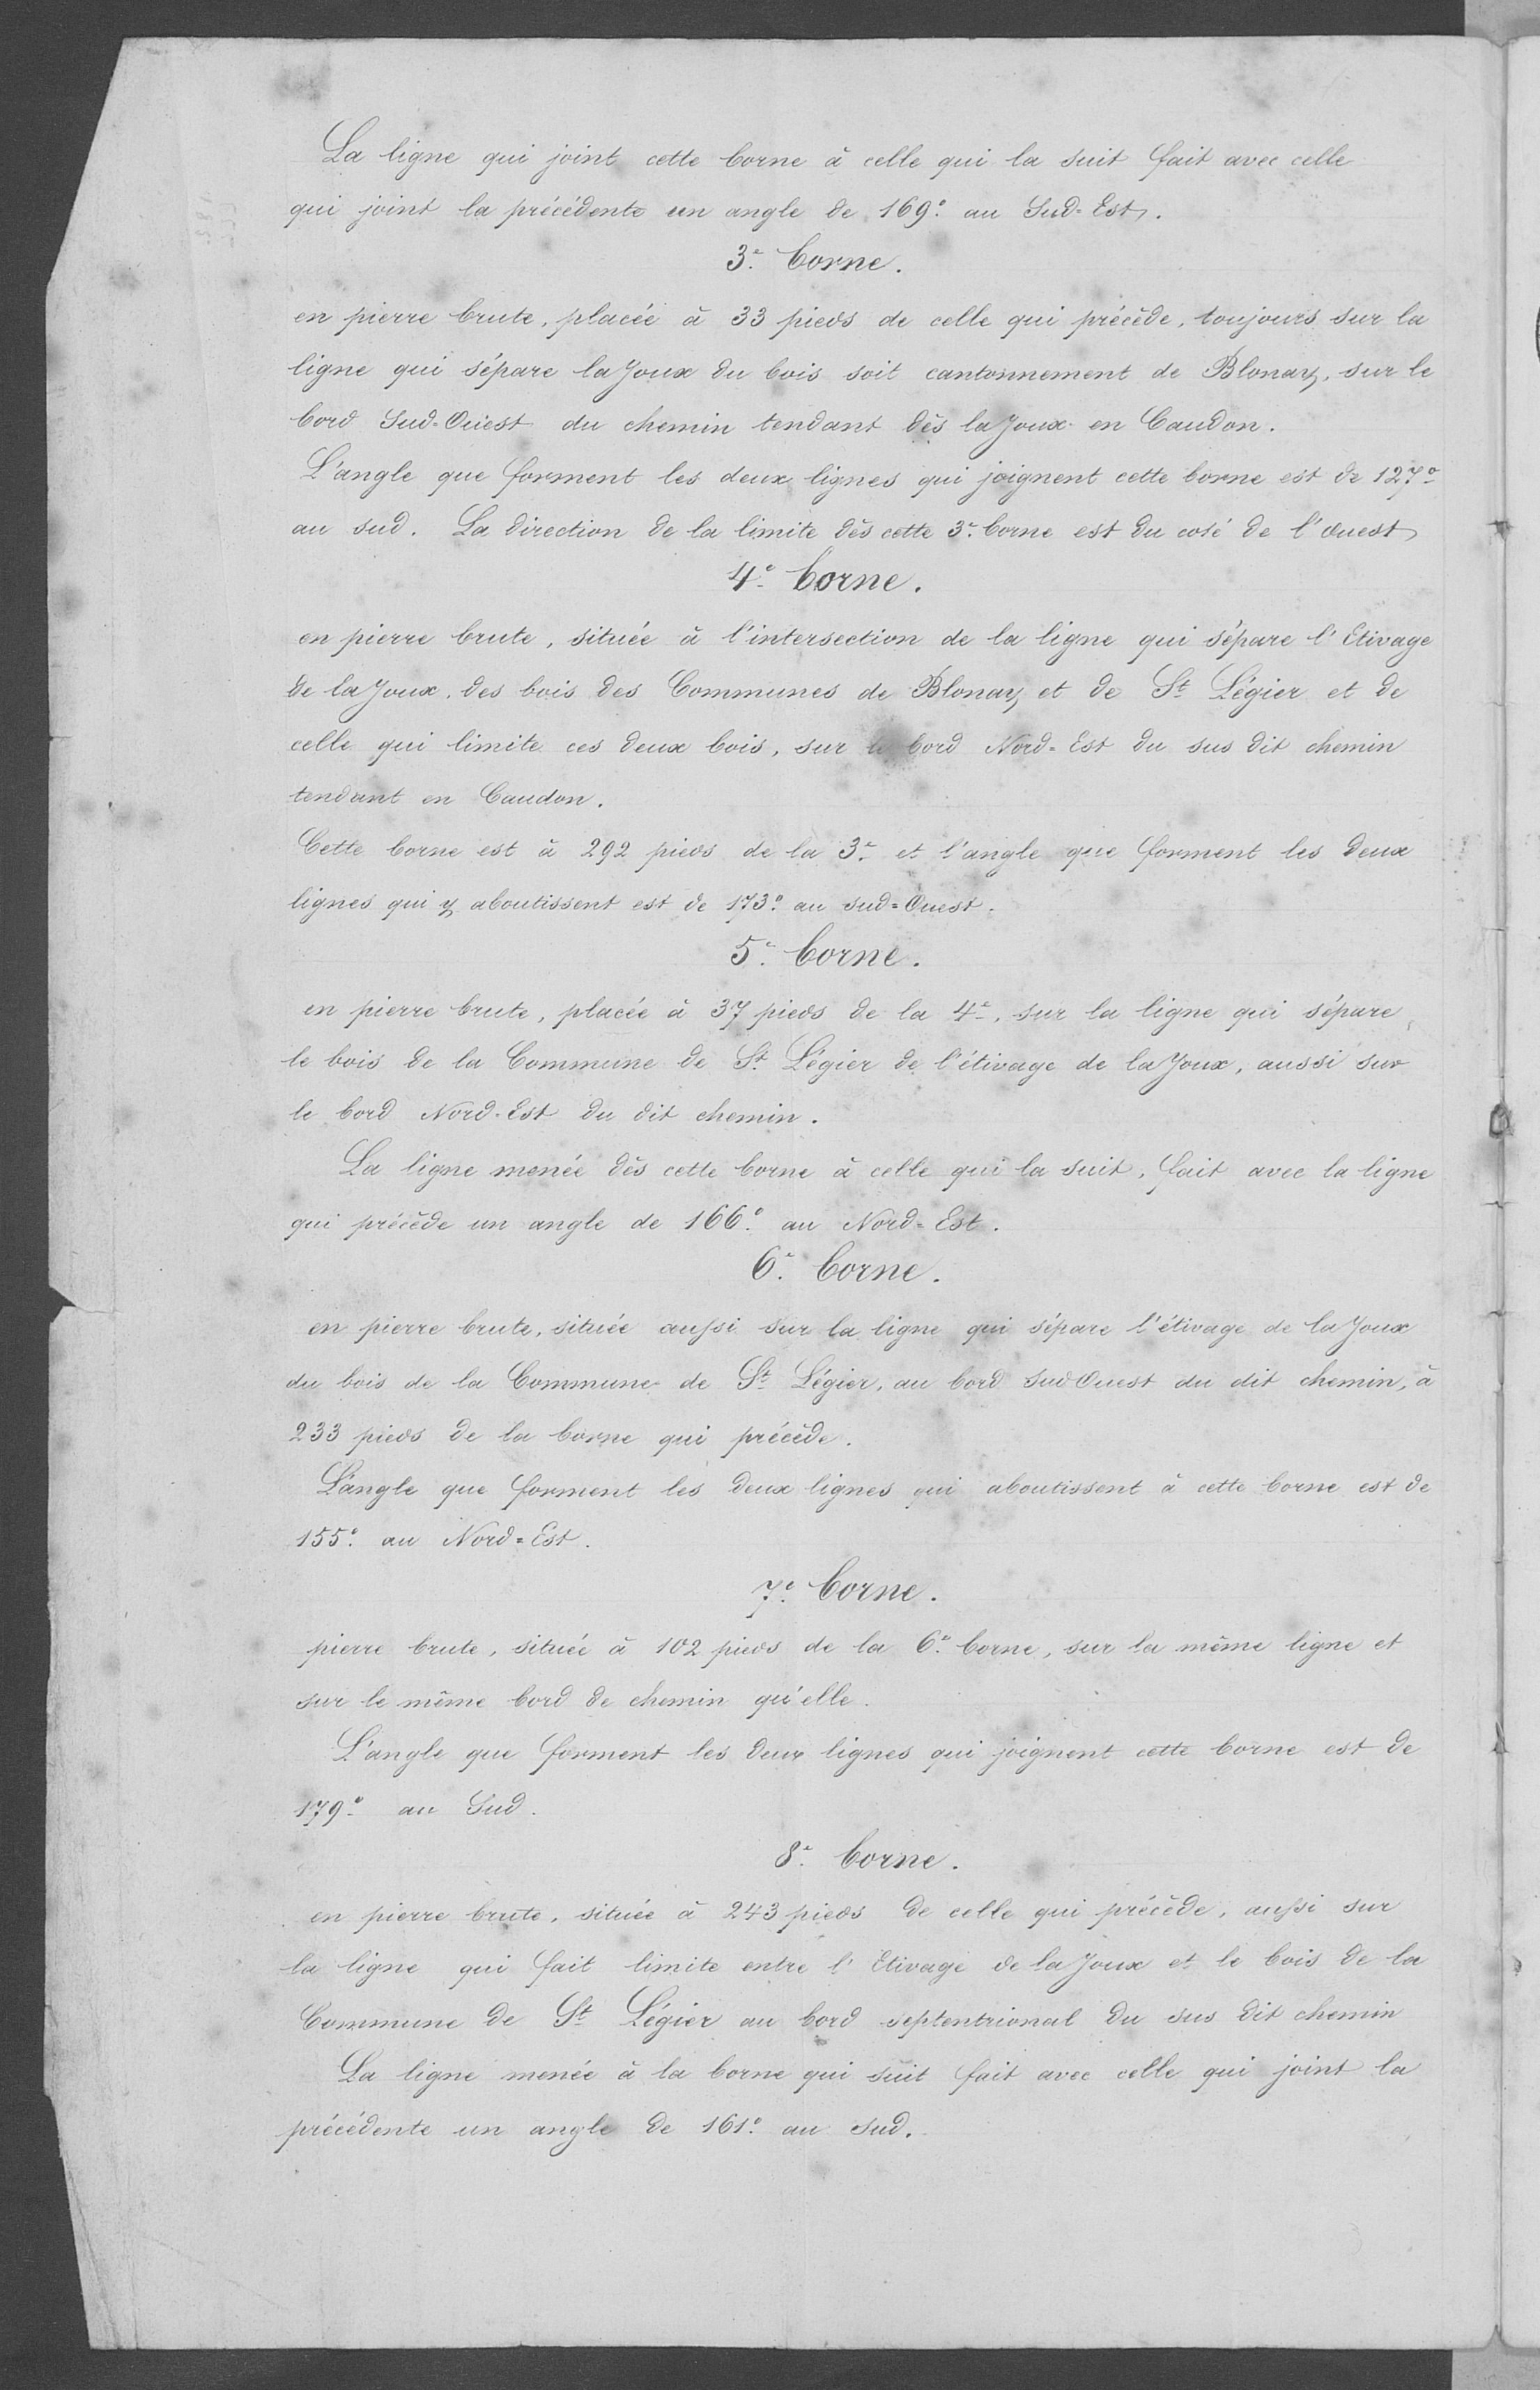 La ligne qui joint cette borne à celle qui la suit fait avec celle
qui joint la précédente un angle de 169° au Sud-Est.
3e borne.
en pierre brute, placée à 33 pieds de celle qui précède, toujours sur la
ligne qui sépare la Joux du bois soit cantonnement de Blonay, sur le
bord Sud-Ouest du chemin tendant dès la Joux en Caudon.
L'angle que forment les deux lignes qui joignent cette borne est de 127°
au sud. La direction de la limite dès cette 3e borne est du coté de l'ouest
4e borne.
en pierre brute, située à l'intersection de la ligne qui sépare l'Etivage
de la Joux, des bois des Communes de Blonay et de St Légier et de
celle qui limite ces deux bois, sur le bord Nord-Est du sus dit chemin
tendant en Caudon.
Cette borne est à 292 pieds de la 3e et l'angle que forment les deux
lignes qui y aboutissent est de 173° au sud-Ouest.
5e borne.
en pierre brute, placée à 37 pieds de la 4e, sur la ligne qui sépare
le bois de la Commune de St Légier de l'étivage de la Joux, aussi sur
le bord Nord-Est du dit chemin.
La ligne menée dès cette borne à celle qui la suit, fait avec la ligne
qui précède un angle de 166° au Nord-Est.
6e borne.
en pierre brute, située aussi sur la ligne qui sépare l'étivage de la Joux
du bois de la Commune de St Légier, au bord Sud Ouest du dit chemin, à
233 pieds de la borne qui précède.
L'angle que forment les deux lignes qui aboutissent à cette borne est de
155° au Nord-Est.
7e borne.
pierre brute, située à 102 pieds de la 6e borne, sur la même ligne et
sur le même bord de chemin qu'elle.
L'angle que forment les deux lignes qui joignent cette borne est de
179° au Sud.
8e borne.
en pierre brute, située à 243 pieds de celle qui précède, aussi sur
la ligne qui fait limite entre l'Etivage de la Joux et le bois de la
Commune de St Légier au bord septentrional du sus dit chemin
La ligne menée à la borne qui suit fait avec celle qui joint la
précédente un angle de 161° au sud.